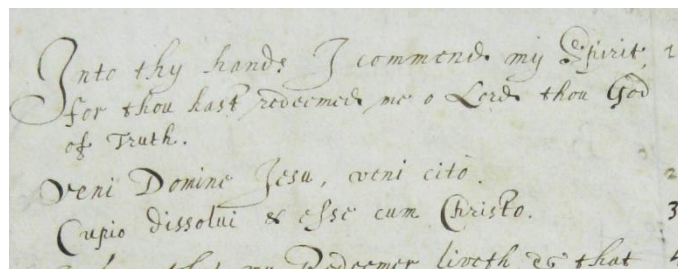 Into thy hands I commend my Spirit, 1
for thou hast redeemed me o Lord thou God
of Truth.
Veni Domine Jesu, veni cito. 2
Cupio dissolui & esse cum Christo. 3
that my Redeemer liveth & that 4